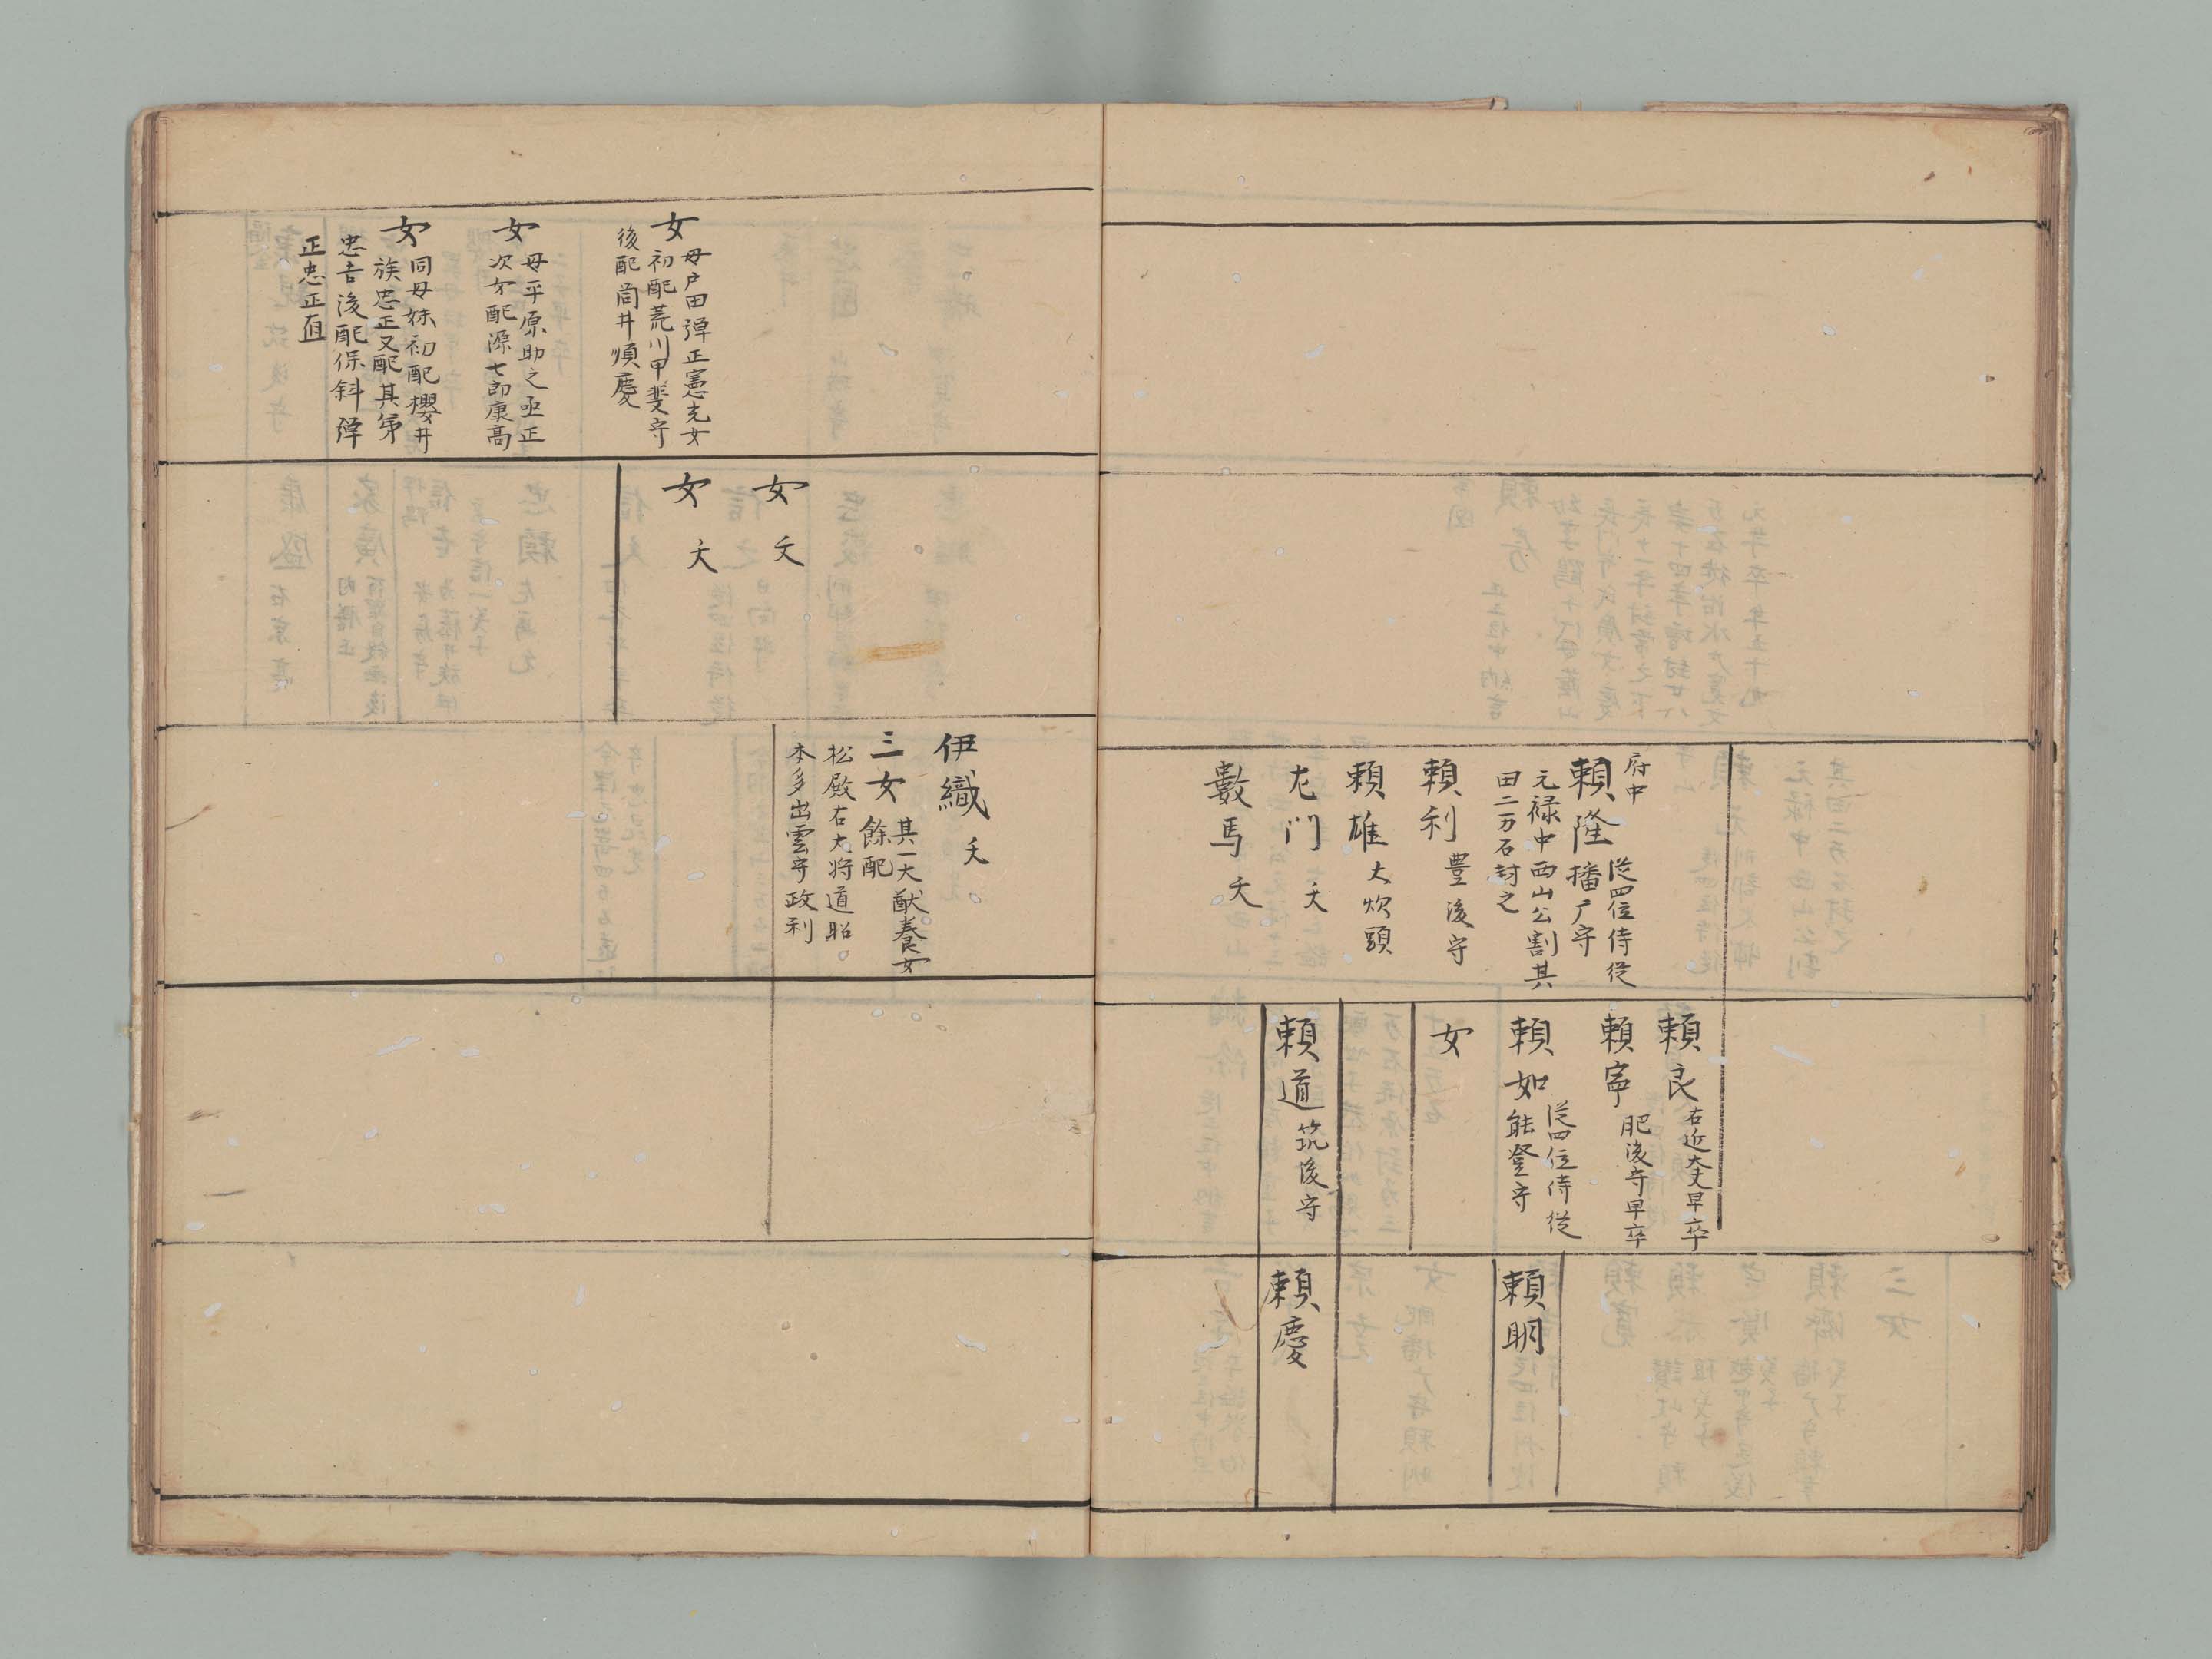 府中
頼隆
従四位侍従
播广守
元禄中西山公割其
田二万石封之
頼利
豊後守
頼雄
大炊頭
左門
夭
數馬
夭
頼良
右近大夫早卒
頼寧
肥後守早卒
頼如
従四位侍従
能登守
女
頼道
筑後守
頼明
頼慶
女
母戸田弾正憲光女
初配荒川甲斐守
後配筒井順慶
女
母平原助之亟正
次女配源七郎康高
女
同母妹初配櫻井
族忠正又配其弟
忠吉後配保科弾
正忠正直
女
夭
女
夭
伊織
夭
三女
其一大猷養女
餘配
松殿右大将道昭
本多出雲守政利